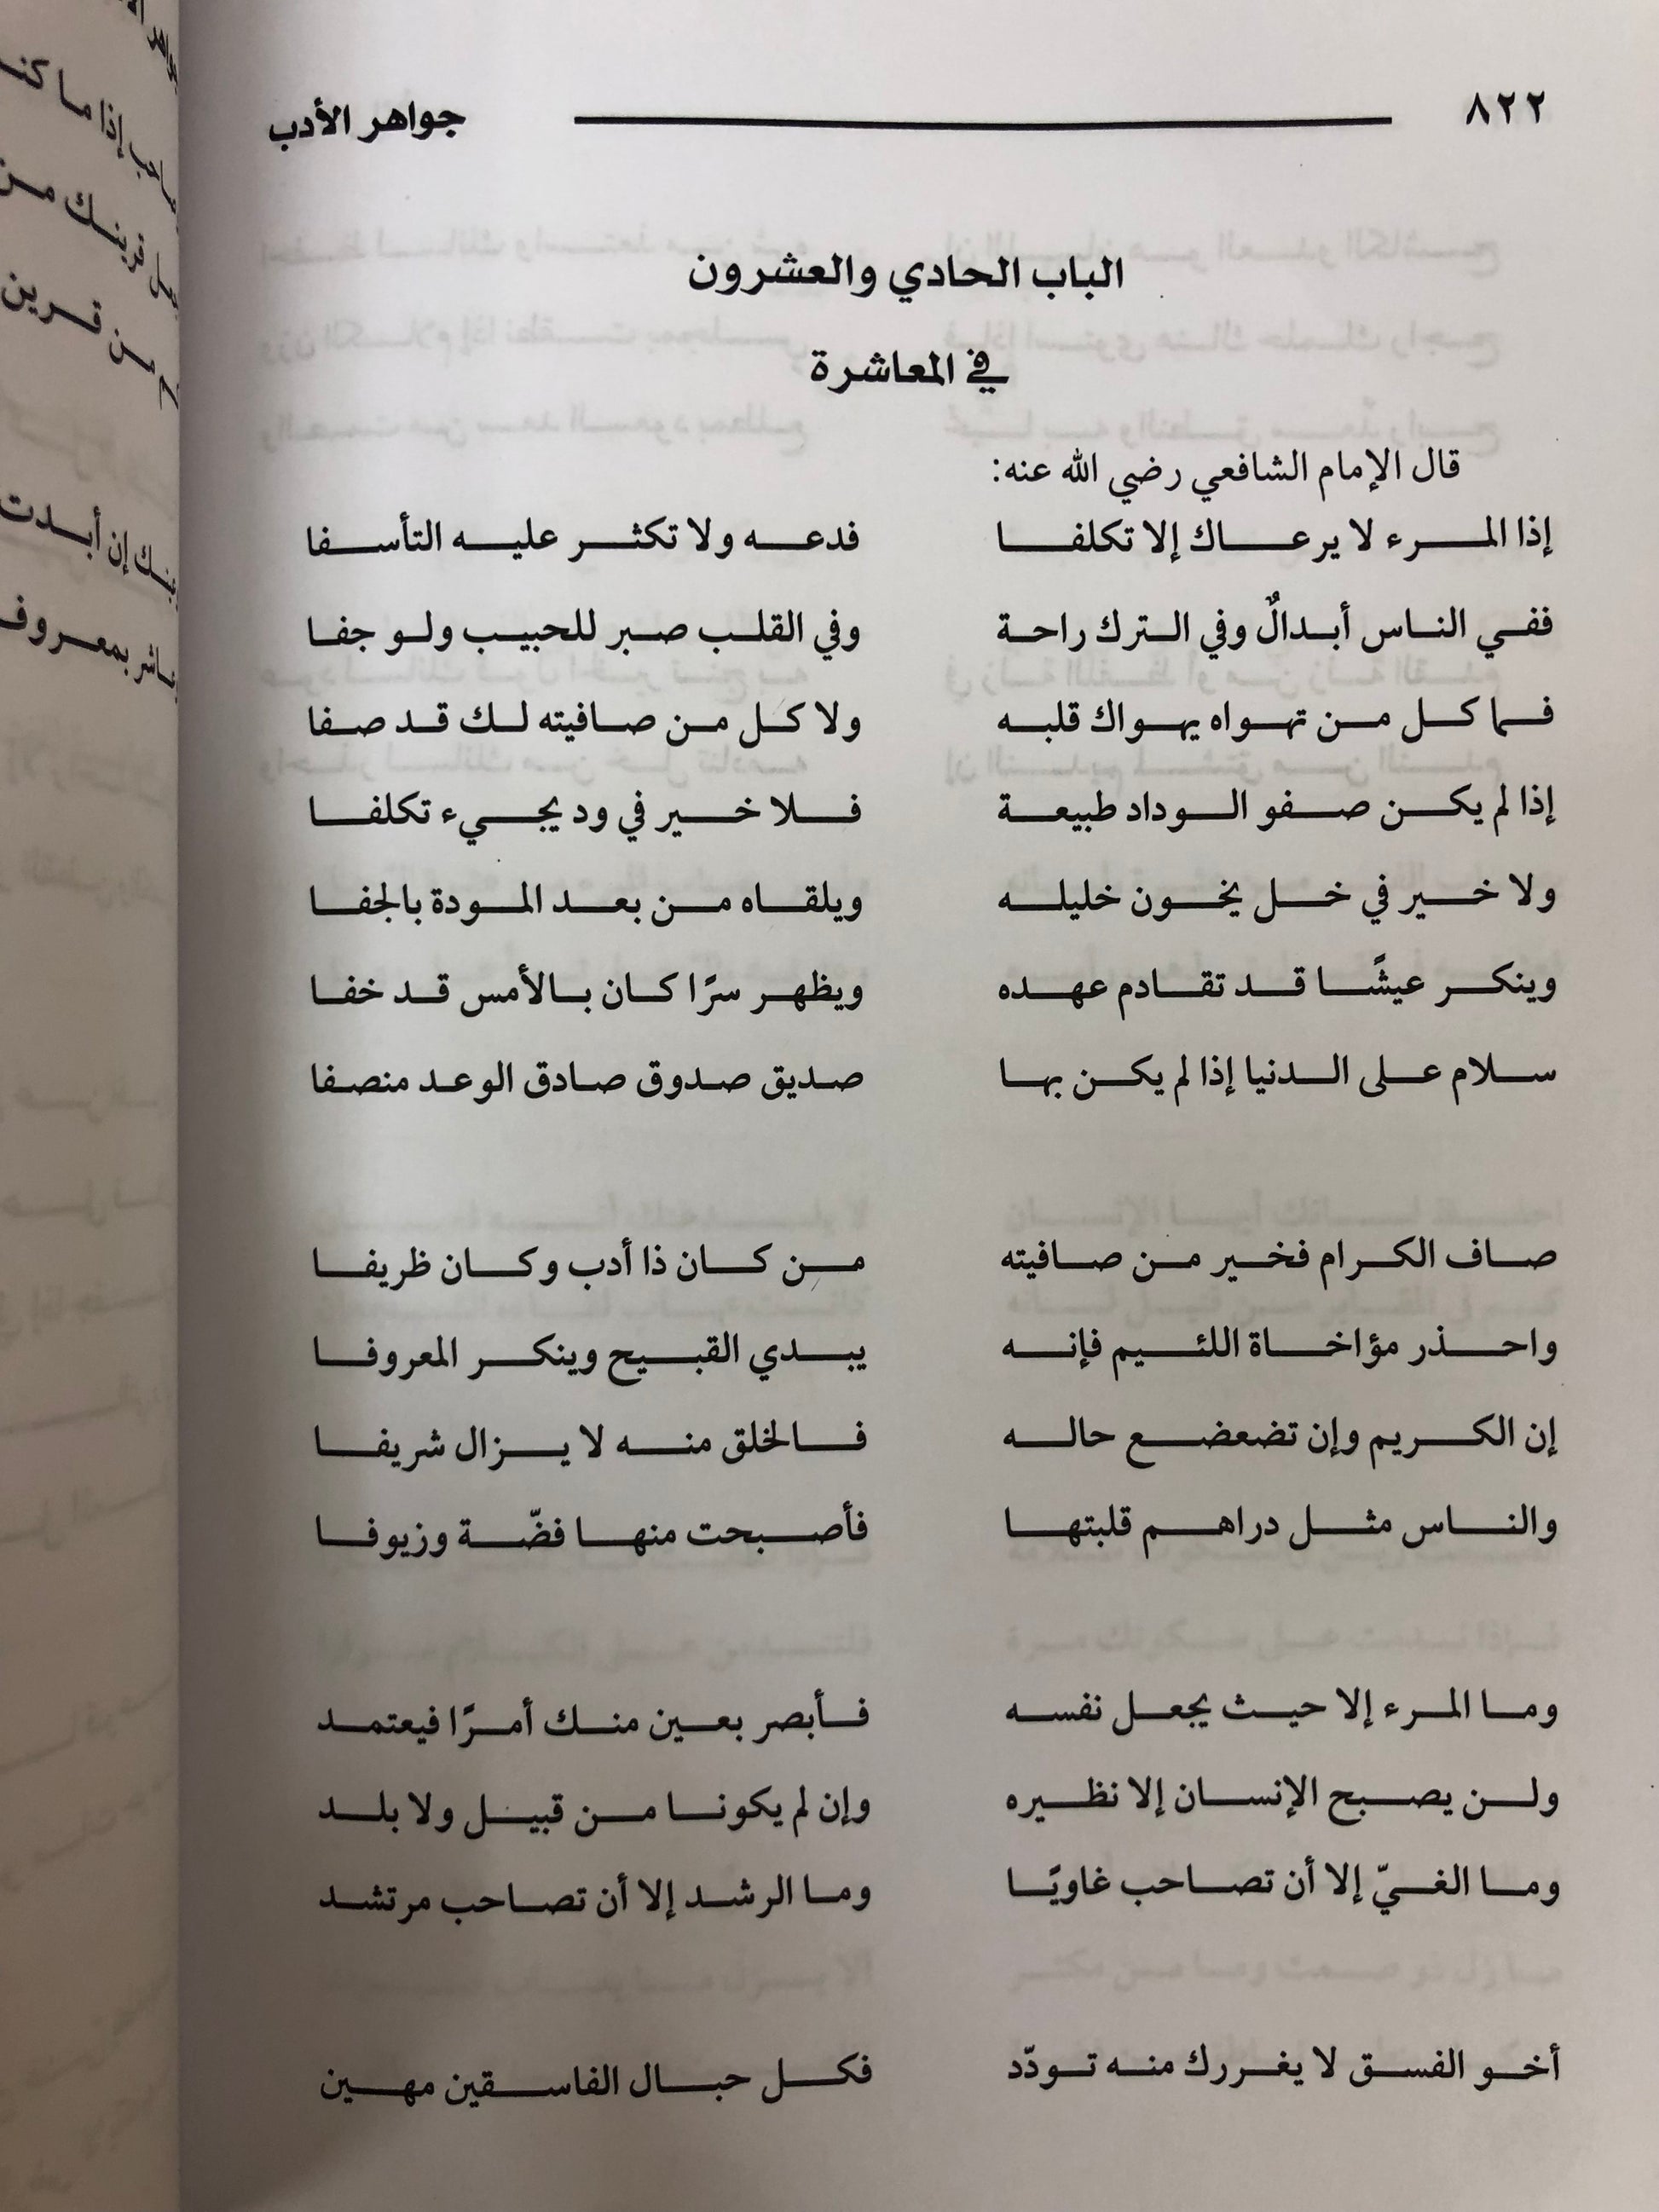 ٨٢٢ جواهر الأدب
الباب الحادي والعشرون
في المعاشرة
قال الإمام الشافعي رضي الله عنه:
إذا المرء لا يرعاك إلا تكلفا فدعه ولا تكثر عليه التأسفا
ففي الناس أبدالٌ وفي الترك راحة وفي القلب صبر للحبيب ولو جفا
فما كل من تهواه يهواك قلبه ولا كل من صافيته لك قد صفا
إذا لم يكن صفو الوداد طبيعة فلا خير في ود يجيء تكلفا
ولا خير في خل يخون خليله ويلقاه من بعد المودة بالجفا
وينكر عيشًا قد تقادم عهده ويظهر سرًا كان بالأمس قد خفا
سلام على الدنيا إذا لم يكن بها صديق صدوق صادق الوعد منصفا
صاف الكرام فخير من صافيته من كان ذا أدب وكان ظريفا
واحذر مؤاخاة اللئيم فإنه يبدي القبيح وينكر المعروفا
إن الكريم وإن تضعضع حاله فالخلق منه لا يزال شريفا
والناس مثل دراهم قلبتها فأصبحت منها فضّة وزيوفا
وما المرء إلا حيث يجعل نفسه فأبصر بعين منك أمرًا فيعتمد
ولن يصبح الإنسان إلا نظيره وإن لم يكونا من قبيل ولا بلد
وما الغيّ إلا أن تصاحب غاويًا وما الرشد إلا أن تصاحب مرتشد
أخو الفسق لا يغررك منه تودّد فكل حبال الفاسقين مهين